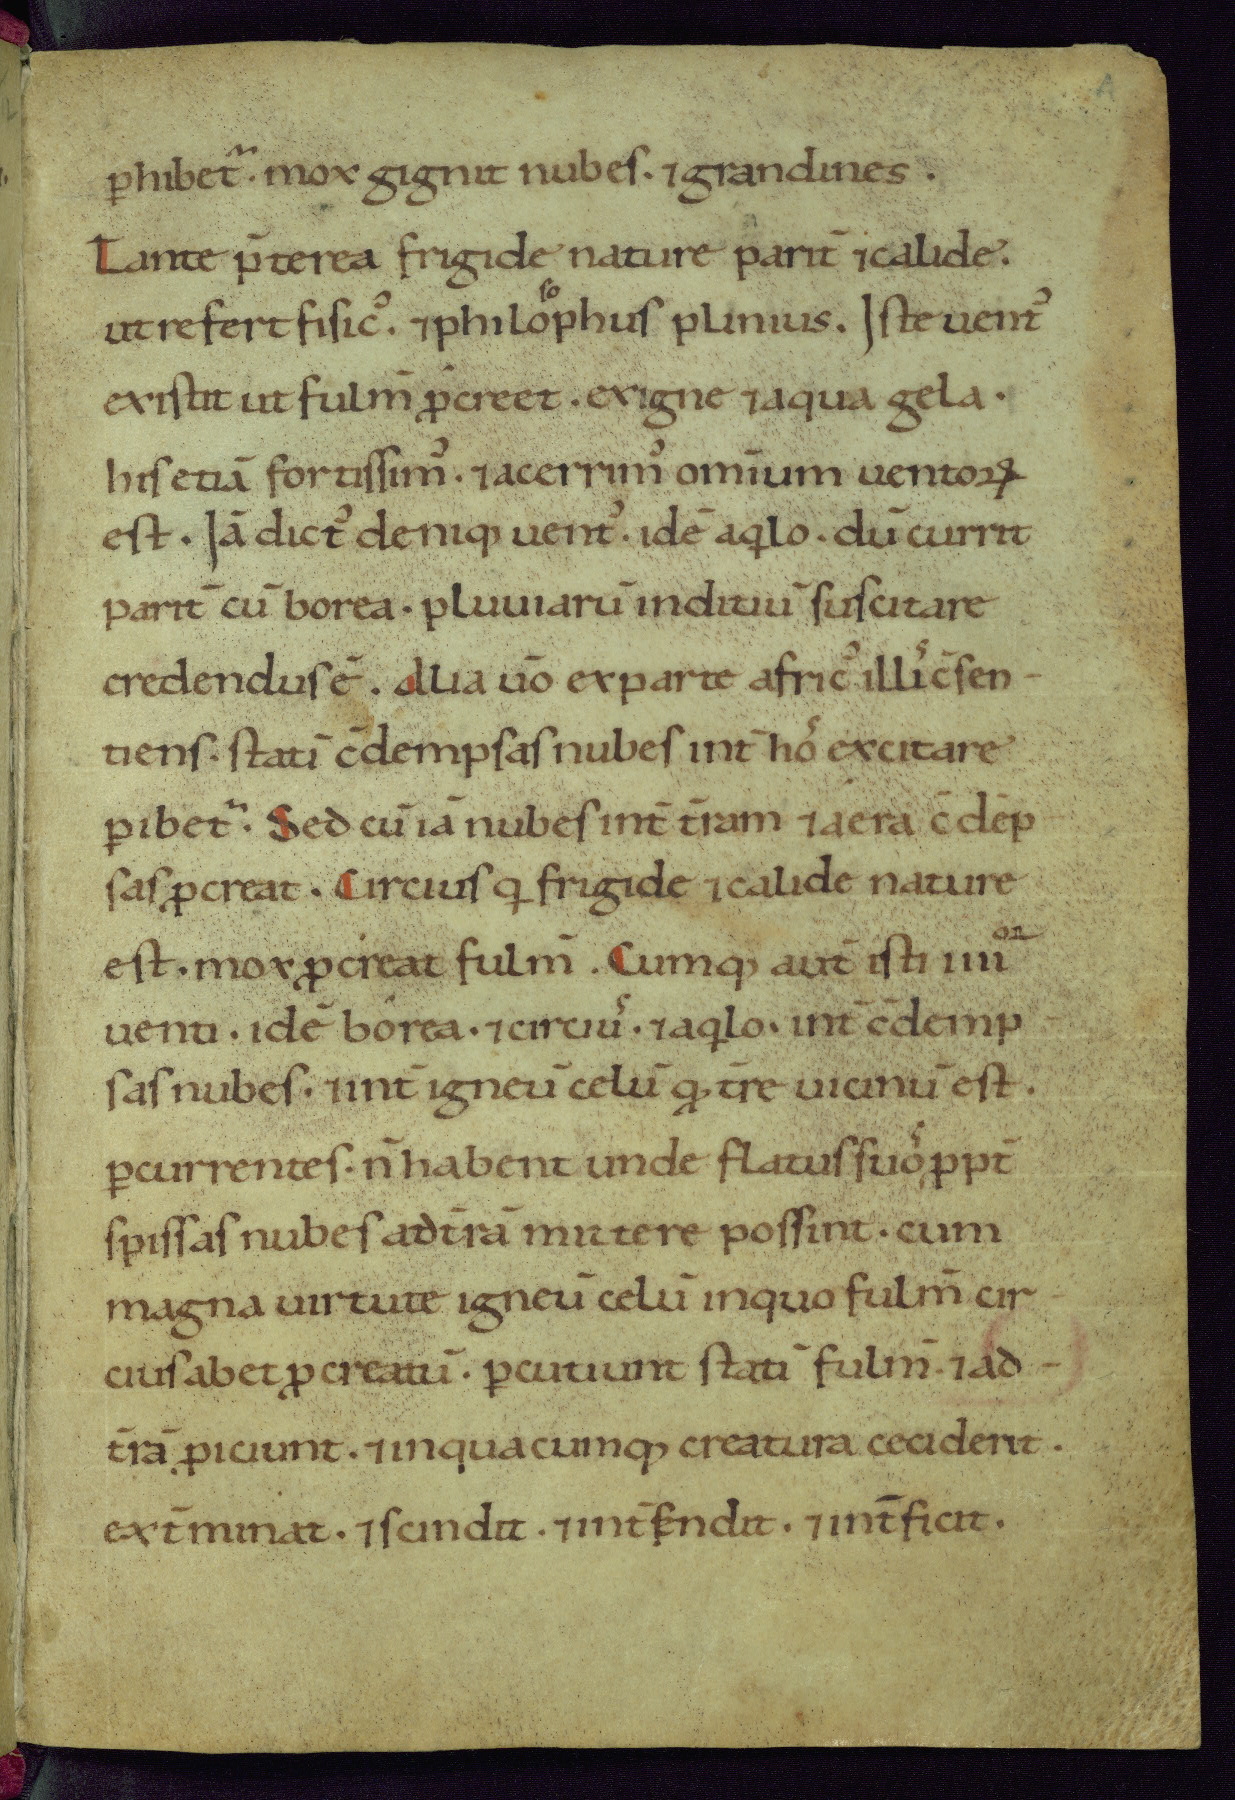 ꝑhibet᷑. mox gignit nubes. ⁊ grandines.
Lante p̄terea frigide nature parit̄ ⁊ calide.
ut refert fisicꝰ. ⁊ philosophus plinius. Iste uentꝰ
existit ut fulm̄ ꝓcreet. ex igne ⁊ aqua gela.
his etiā fortissimꝰ. ⁊ acerrimꝰ omīum uentoꝝ
est. Iā dictꝰ deniqꝫ uentꝰ. idē aqlo. dū currit
parit̄ cū borea. pluuiarū inditiū suscitare
credendus ē. Alia ūo ex parte africꝰ illic c̄sen-
tiens. statī c̄dempsas nubes int̄ hos excitare
ꝑibet᷑. Sed cū iā nubes int̄ t̄ram ⁊ aera c̄dēp
sas ꝓcreat. Circius q frigide ⁊ calide nature
est. mox ꝓcreat fulm̄. Cumqꝫ aut̄ isti iiiior
uenti. idē borea. ⁊ circius. ⁊ aqlo. int̄ c̄demp-
sas nubes. ⁊ int̄ igneū celū qꝫ t̄re uicinū est.
ꝑcurrentes. n̄ habent unde flatus suos ꝓpt̄
spissas nubes ad t̄rā mittere possint. cum
magna uirtute igneū celū in quo fulm̄ cir-
cius abet ꝓcreatū. ꝑcutiunt statī fulm̄. ⁊ ad-
t̄rā ꝓiciunt. ⁊ in quacumqꝫ creatura ceciderit.
ext̄minat. ⁊ scindit. ⁊ int̄ ⁊ int̄ficit.